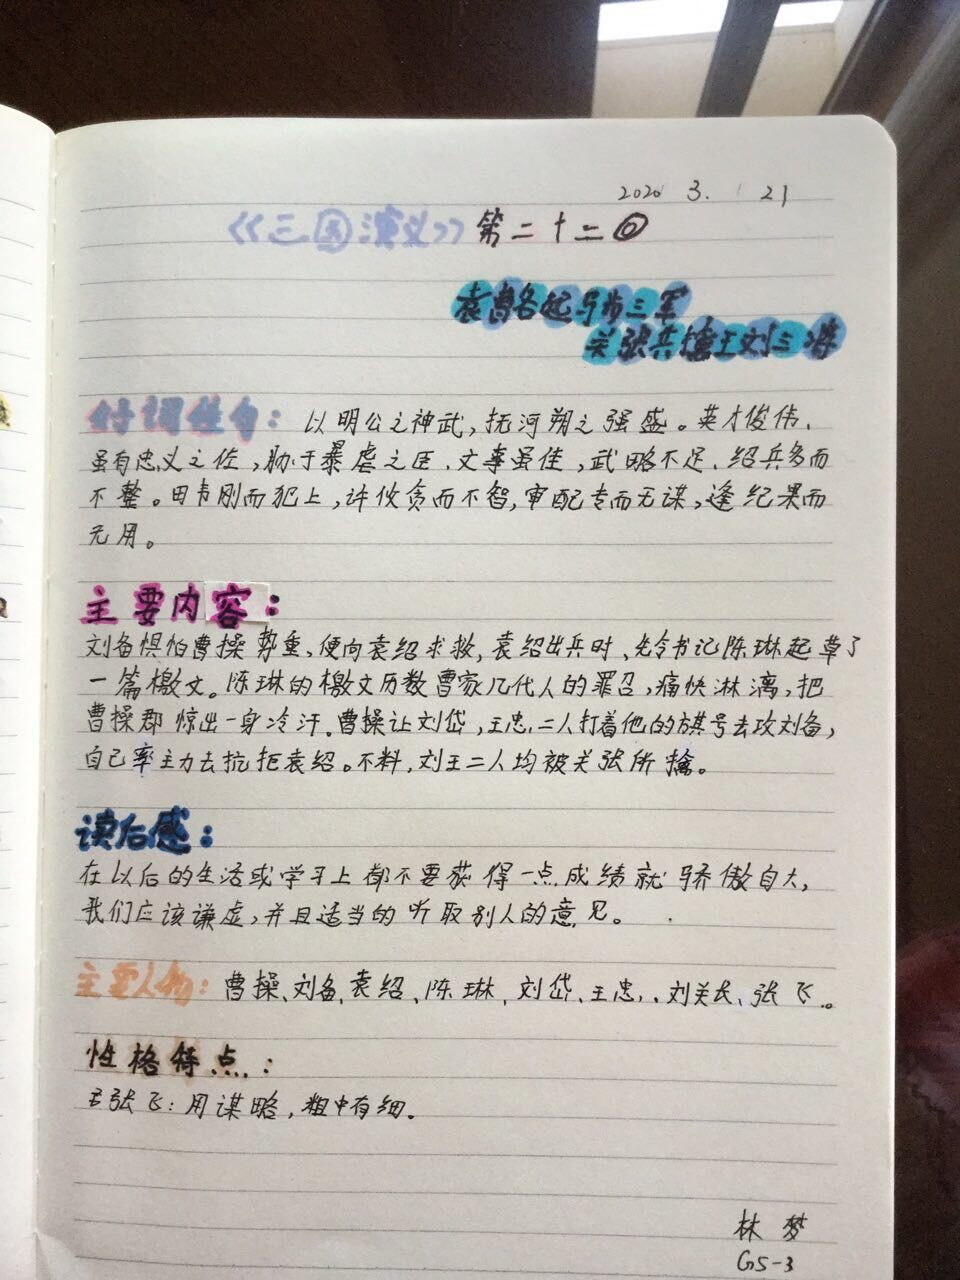 2020 3. 21
《《三国演义》》第二十二回
袁曹各起马步三军
关张共擒王刘二将
好词佳句：以明公之神武，抚河朔之强盛。英才俊伟、
虽有忠义之佐，胁于暴虐之臣、文事虽佳，武略不足、绍兵多而
不整。田韦刚而犯上，许攸贪而不智，审配专而无谋，逢纪果而
无用。
主要内容：
刘备惧怕曹操势重、便向袁绍求救，袁绍出兵时、先令书记陈琳起草了
一篇檄文。陈琳的檄文历数曹家几代人的罪召，痛快淋漓，把
曹操郡惊出一身冷汗。曹操让刘岱，王忠，二人打着他的旗号去攻刘备，
自己率主力去抗拒袁绍。不料，刘王二人均被关张所擒。
读后感：
在以后的生活或学习上都不要获得一点成绩就骄傲自大，
我们应该谦虚，并且适当的听取别人的意见。
主要人物：曹操、刘备、袁绍、陈琳、刘岱、王忠、、刘关长、张飞。
性格特点：
张飞：用谋略，粗中有细。
林梦
G5-3